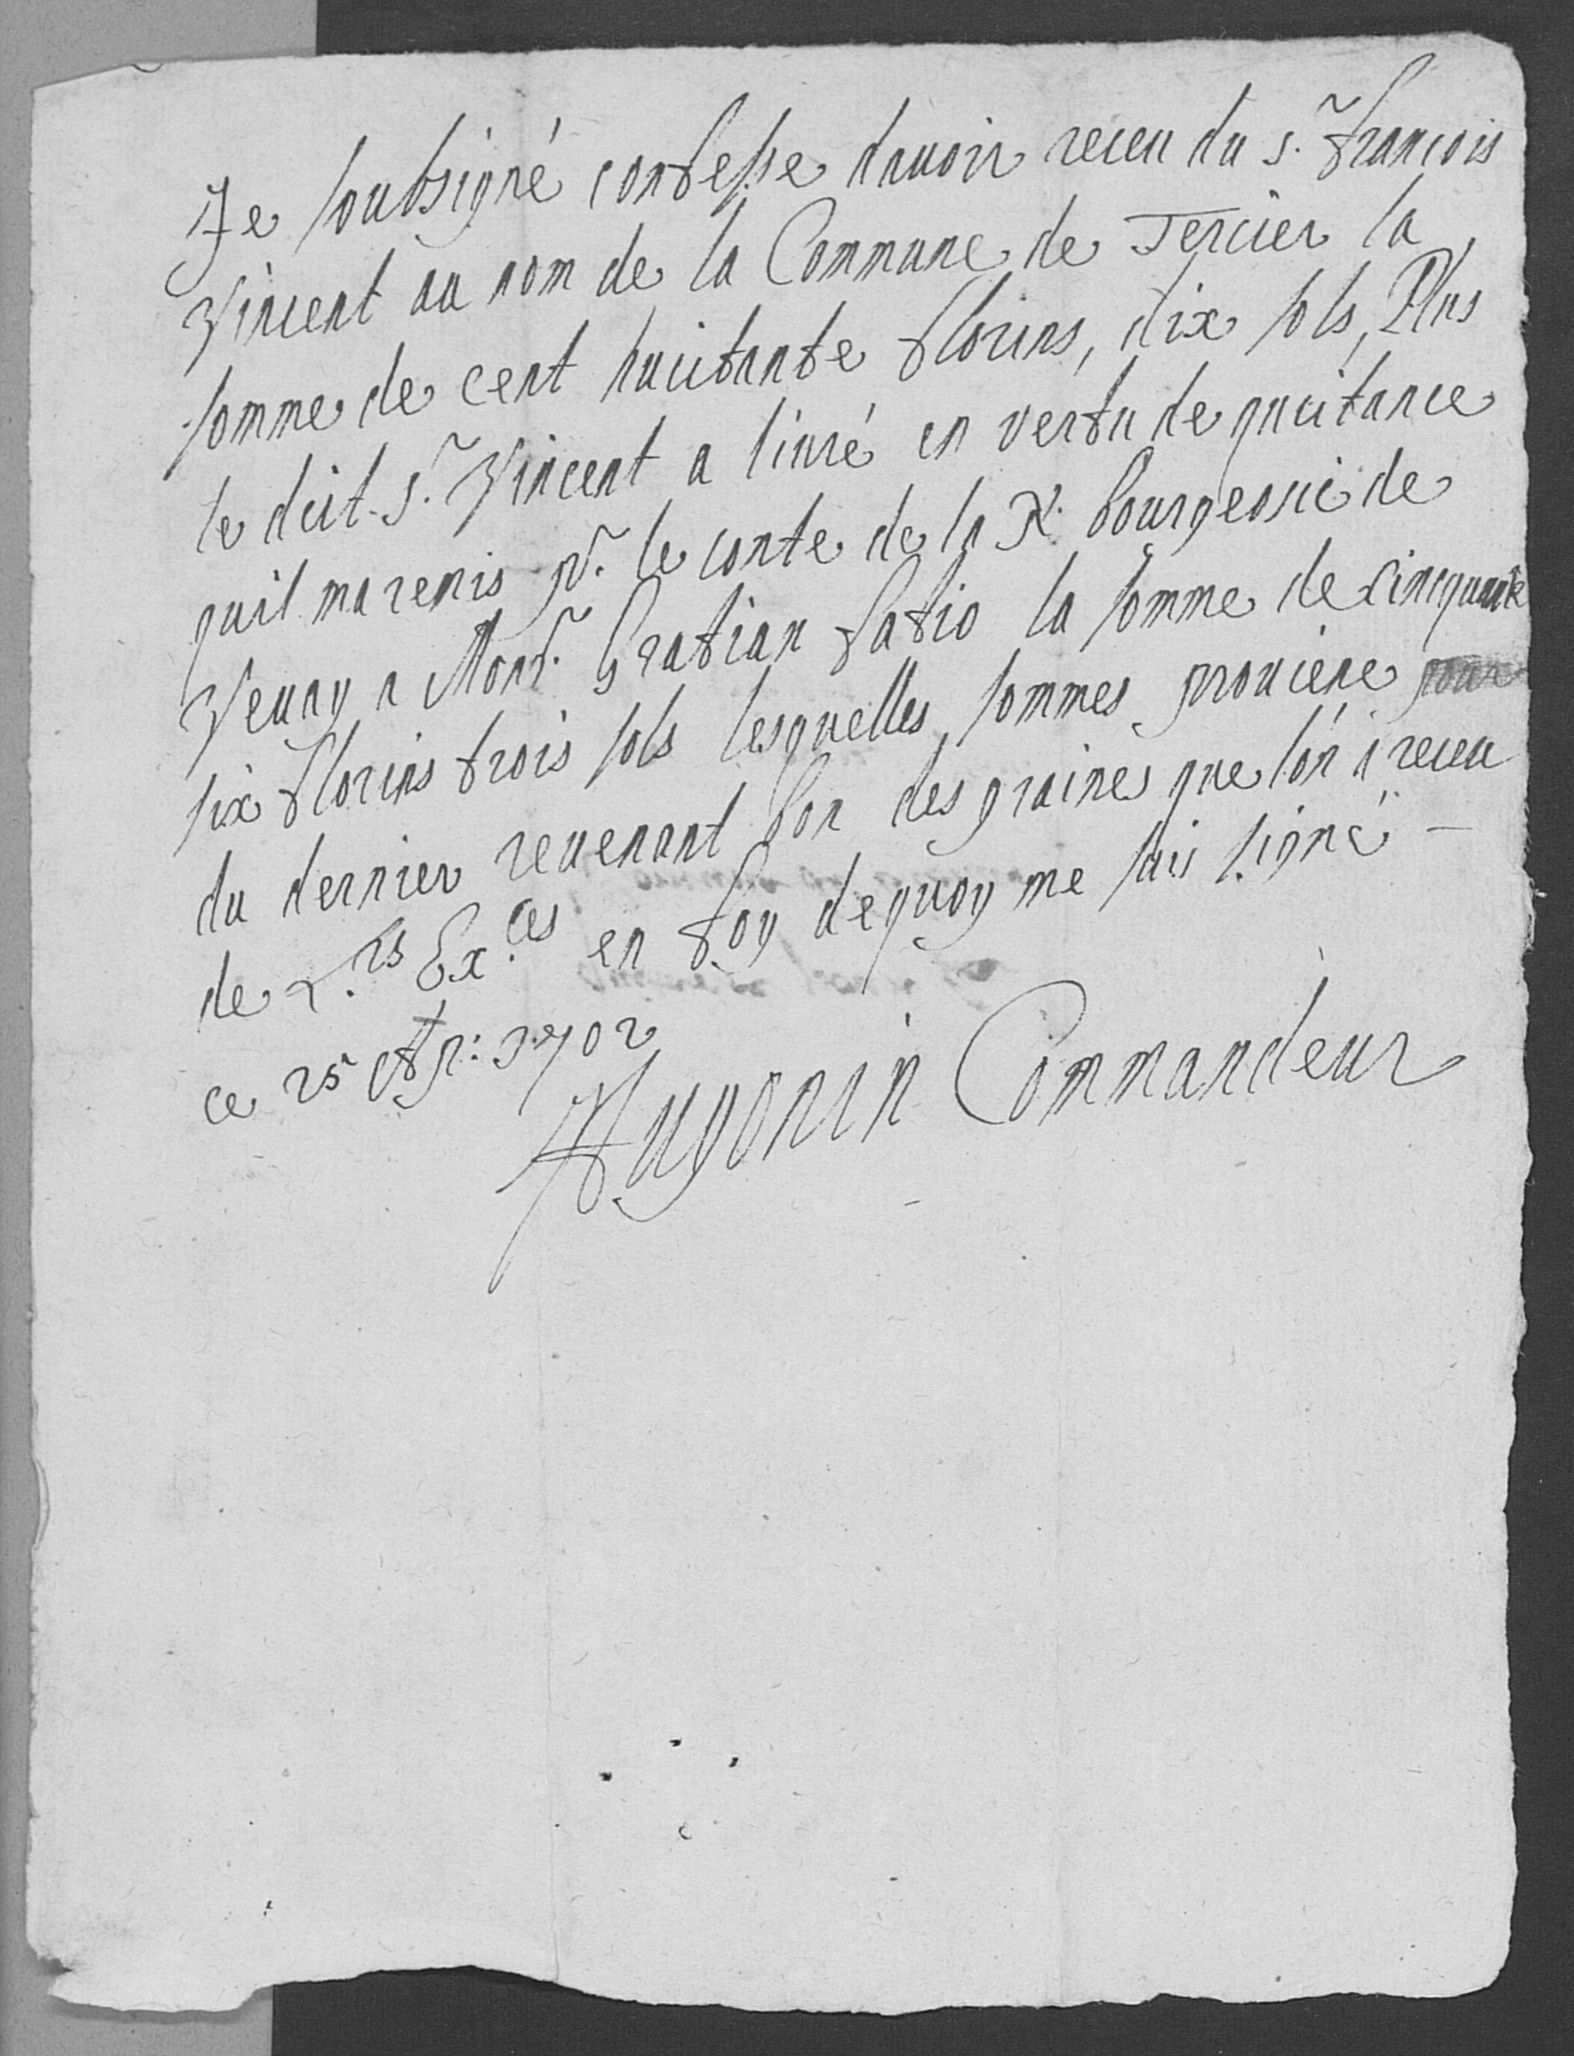 Je soubsigné confesse davoir receu du S.r François
Vincent au nom de la Commune de Tercier la
somme de cent huictante florins, dix sols, Plus
le dict S.r Vincent a livré en vertu de quictance
quil ma remis p.r le conte de la N. bourgeosie de
Vevay a Mons.r Gratian fatio la somme de Cincquante
six florins trois sols lesquelles sommes proviene pour
du dernier revenant bon des graines que lon a receu
de L.rs Ex.ces en foy dequoy me suis signé
ce 25 1702
Hugonin Commandeur